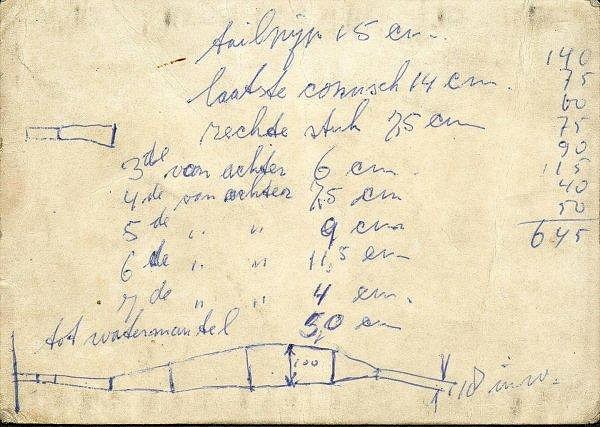 tailpijp 15 cm.
laatste conisch 14 cm.
rechte stuk 7,5 cm
3de van achter 6 cm.
4de van achter 7,5 cm
5 de " " 9 cm
6 de " " 11,5 cm
7 de " " 4 cm.
tot watermantel 5,0 cm
140
75
60
75
90
115
40
50
645
100
18 inw.